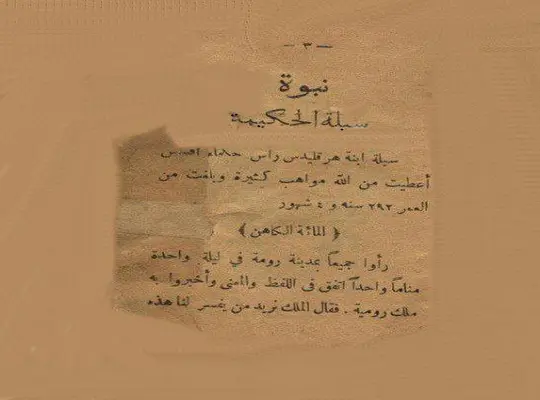 — ٣ —
نبوة
سبلة الحكيمة
سبلة ابنة هرقليدس راس حكماء افسس
أعطيت من الله مواهب كثيرة وبلغت من
العمر ٢٩٢ سنه و ٤ شهور
﴿ المائة الكاهن ﴾
رأوا جميعاً بمدينة رومة في ليلة واحدة
مناماً واحداً اتفق فى اللفظ والمعنى وأخبروا به
ملك رومية . فقال الملك نريد من يفسر لنا هذه